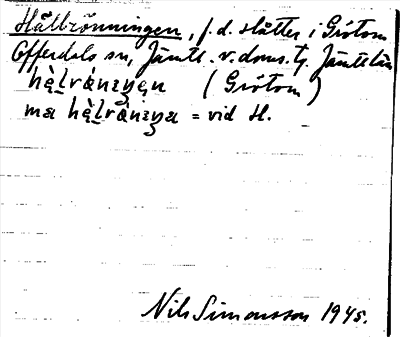 Hälbrönningen, f.d. slåtter i Grötom
Offerdals sn, Jämtl. v. doms. tj. Jämtlands län
hä̀lrániŋən (Grötom)
ma hä̀lrániŋa = vid H.
Nils Simonsson 1945.